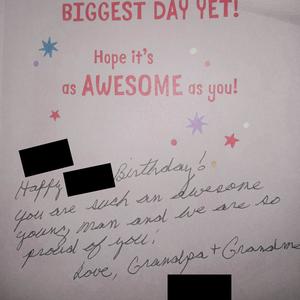 BIGGEST DAY YET!
Hope it's
as AWESOME as you!
Happy Birthday!
you are such an awesome
young man and we are so
proud of you!
Love, Grandpa + Grandma